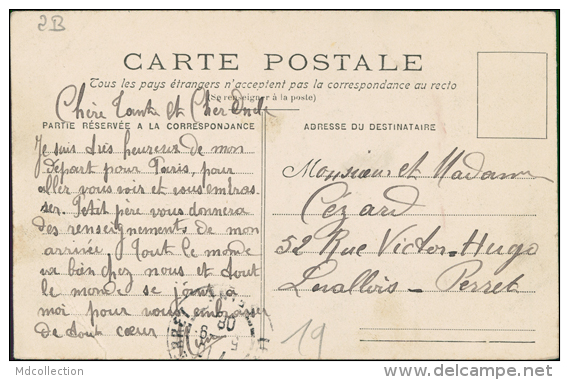 2B
CARTE POSTALE
Tous les pays étrangers n'acceptent pas la correspondance au recto
(Se renseigner à la poste)
Chère Tante et Cher Oncle
PARTIE RÉSERVÉE A LA CORRESPONDANCE
Je suis très heureux de mon
départ pour Paris, pour
aller vous voir et vous embras
ser. Petit père vous donnera
des renseignements de mon
arrivée Tout le monde
va bien chez nous et tout
le monde se joint à
moi pour vous embrasser
de tout cœur
ADRESSE DU DESTINATAIRE
Monsieur et Madame
Cézard
52 Rue Victor-Hugo
Levallois - Perret
19
Mdcollection
delcampe.net